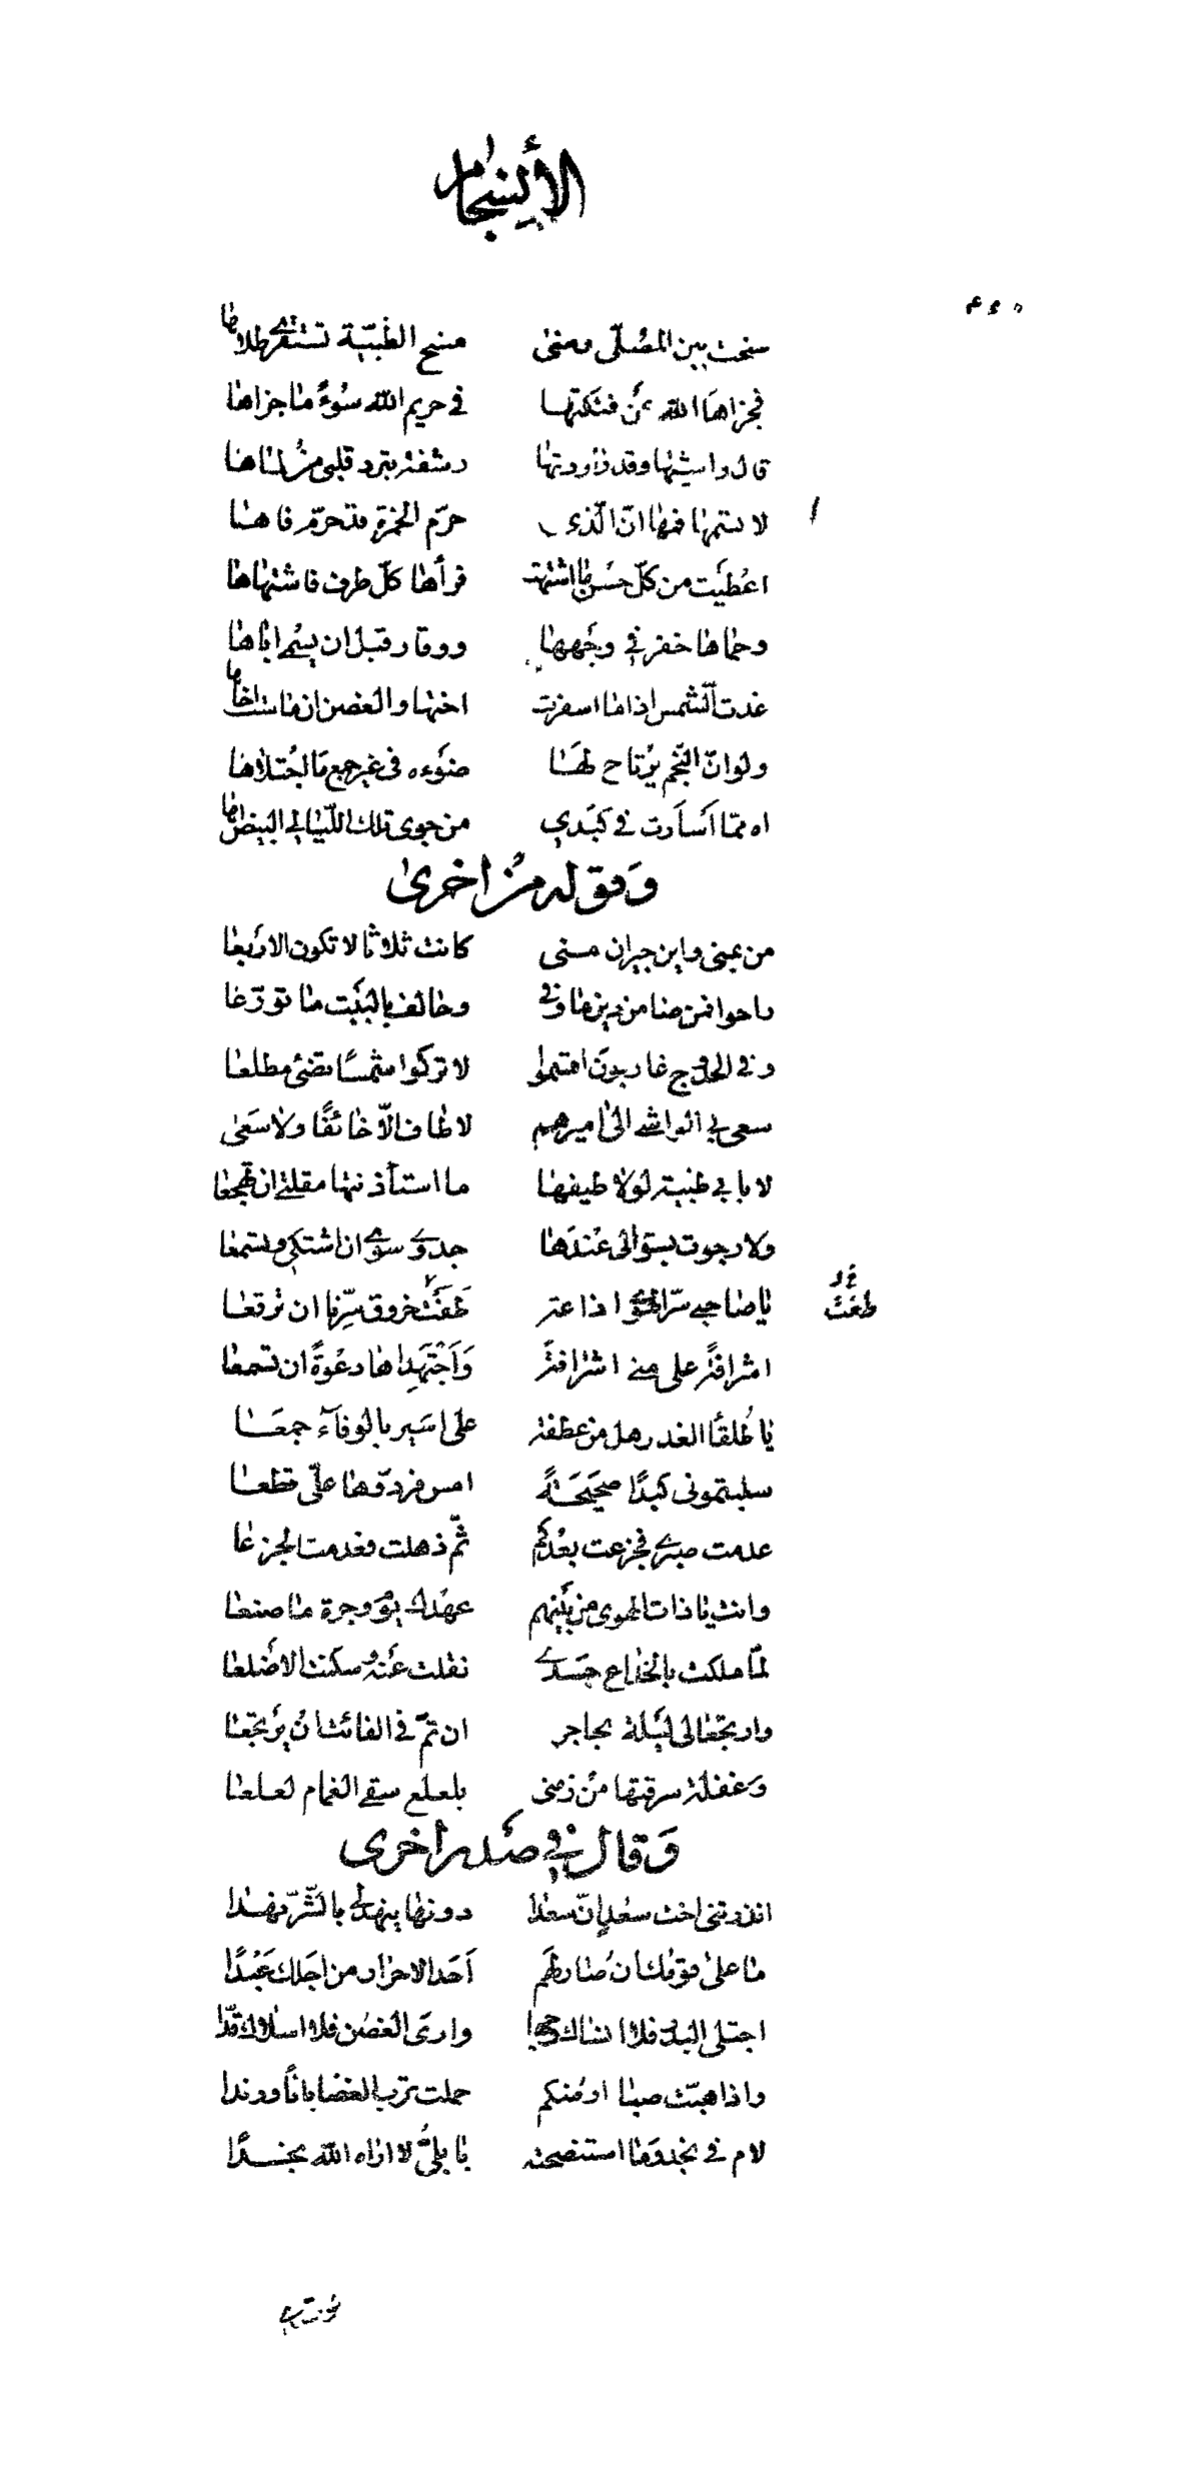 الأنسجام
سنحت بين المصلّى ومنى مسنح الظبية تستقرى طلاها
فجزاها الله عمّن فتكتها في حريم الله سوءً ما جزاها
قال واشيها وقد راودتها رشفة تبرد قلبى من لماها
لا تسمها فمها انّ الّذى حرّم الخمرة قد حرّم فاها
اعطيت من كلّ حسن ما اشتهت فرأها كلّ طرف فاشتهاها
وحماها خفر في وجهها ووقار قبل ان يسم اباها
غدت الشمس اذا ما اسفرت اختها والغصن ان ماست اخاها
ولو انّ النّجم يرتاح لها ضوءه في غير جمع ما اجتلاها
اه ممّا اسأرت في كبدي من جوى تلك اللّيالى البيض اها
وقوله من اخرى
من بمنى واين جيران منى كانت ثلاثا لا تكون الاربعا
راحوا فمن ضامن دين ما وفى وحالف بالبيت ما تورّعا
وفي الحدوج غاربون اقسموا لا تركوا شمسًا تضئ مطلعا
سعى بي الواشى الى اميرهم لا طاف الّا خائفًا ولا سعى
لا بابي ظبية لولا طيفها ما استأذنتها مقلة ان تهجعا
ولا رجوت بسؤالى عندها جدوى سوى ان اشتكى وتسمعا
يا صاحبى سرّ الهوى اذا عتر طغت خروق سرّنا ان ترقعا
طغت
اشرافةً على منى اشرافة واجتهداها دعوةً ان تسمعا
يا طلقا الغدر هل من عطفة على اسير بالوفآء جمعا
سلبتموني كبدًا صحيحةً امس فردّوها علىّ قطعا
عدمت صبرى فجزعت بعدكم ثمّ ذهلت فعدمت الجزعا
وانت يا ذات الهوى من بينهم عهدك يوم وجرة ما صنعا
لمّا ملكت بالخداع جسدى نقلت عنه وسكنت الاضلعا
وارتجعا لى ليلة بحاجر ان تمّ في الفائت ان يرتجعا
وغفلة سرقتها من زمنى بلعلع سقى الغمام لعلعا
وقال في صدر اخرى
انذرتنى اخت سعد انّ سعدا دونها ينهد لى بالشّرّ نهدا
ما على قومك ان صار لهم احد الاحرار من اجلك عبدًا
اجتلى البدر فلا انساك وجها وارى الغصن فلا اسلاك قدّا
واذا هبّت صبا ارضكم حملت ترب الغضا بانًا ورندا
لام في نجد وما استنصحته بابلىّ لا اراه الله نجدًا